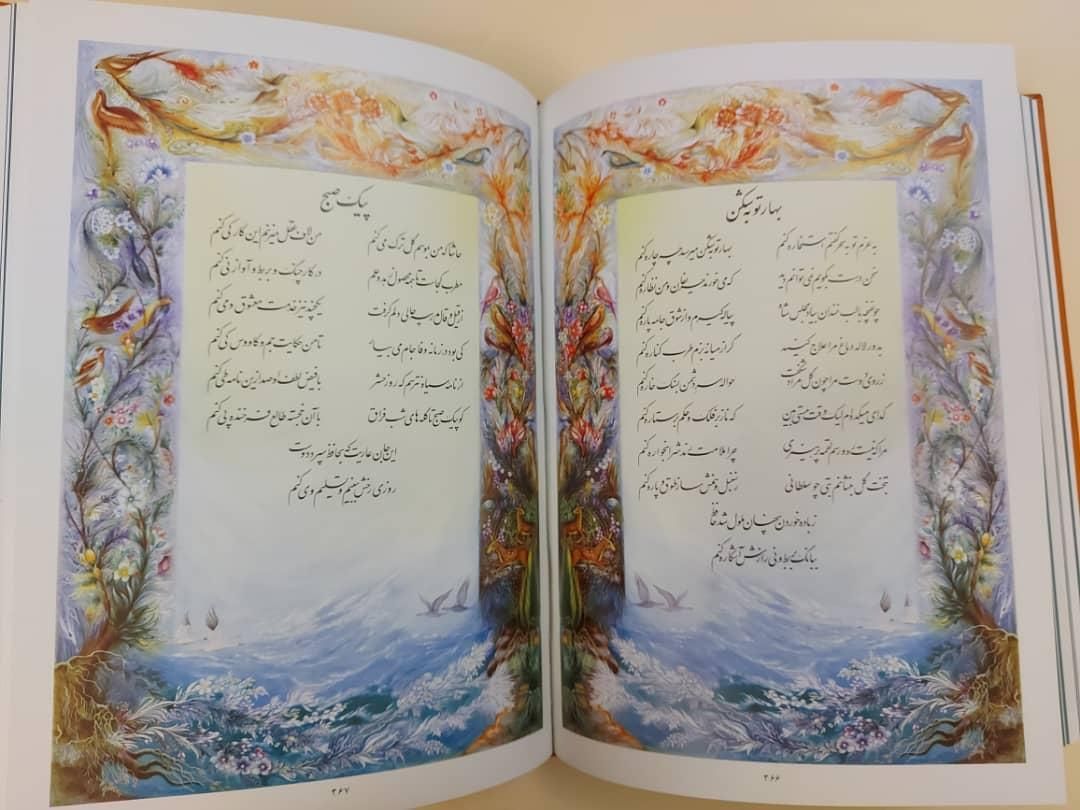 بهار توبه شکن
به عزم توبه سحر گفتم استخاره کنم بهار توبه شکن میرسد چه چاره کنم
سخن درست بگویم نمی توانم دید که می خورند حریفان و من نظاره کنم
چو غنچه با لب خندان به یاد مجلس شاه پیاله گیرم و از شوق جامه پاره کنم
به دور لاله دماغ مرا علاج کنید گر از میانه بزم طرب کناره کنم
ز روی دوست مرا چون گل مراد شکفت حواله سر دشمن به سنگ خاره کنم
گدای میکده ام لیک وقت مستی بین که ناز بر فلک و حکم بر ستاره کنم
مرا که نیست ره و رسم لقمه پرهیزی چرا ملامت رند شرابخواره کنم
به تخت گل بنشانم بتی چو سلطانی ز سنبل و سمنش ساز طوق و یاره کنم
ز باده خوردن پنهان ملول شد حافظ
به بانگ بربط و نی رازش آشکاره کنم
۳۶۶
پیک صبح
حاشا که من به موسم گل ترک می کنم من لاف عقل میزنم این کار کی کنم
مطرب کجاست تا همه محصول زهد و علم در کار چنگ و بربط و آواز نی کنم
از قیل و قال مدرسه حالی دلم گرفت یکچند نیز خدمت معشوق و می کنم
کی بود در زمانه وفا جام می بیار تا من حکایت جم و کاووس کی کنم
از نامه سیاه نترسم که روز حشر با فیض لطف او صد ازین نامه طی کنم
کو پیک صبح تا گله های شب فراق با آن خجسته طالع فرخنده پی کنم
این جان عاریت که به حافظ سپرد دوست
روزی رخش ببینم و تسلیم وی کنم
۳۶۷